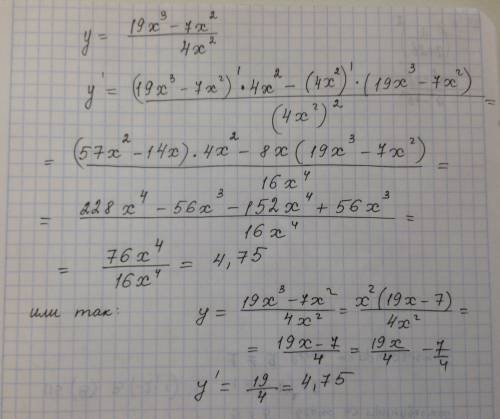 y = (19x³ − 7x²) / 4x²
y' = ((19x³ − 7x²)' · 4x² − (4x²)' · (19x³ − 7x²)) / (4x²)² =
= ((57x² − 14x) · 4x² − 8x (19x³ − 7x²)) / 16x⁴ =
= (228x⁴ − 56x³ − 152x⁴ + 56x³) / 16x⁴ =
= 76x⁴ / 16x⁴ = 4,75
или так: y = (19x³ − 7x²) / 4x² = x² (19x − 7) / 4x² =
= (19x − 7) / 4 = 19x / 4 − 7 / 4
y' = 19 / 4 = 4,75